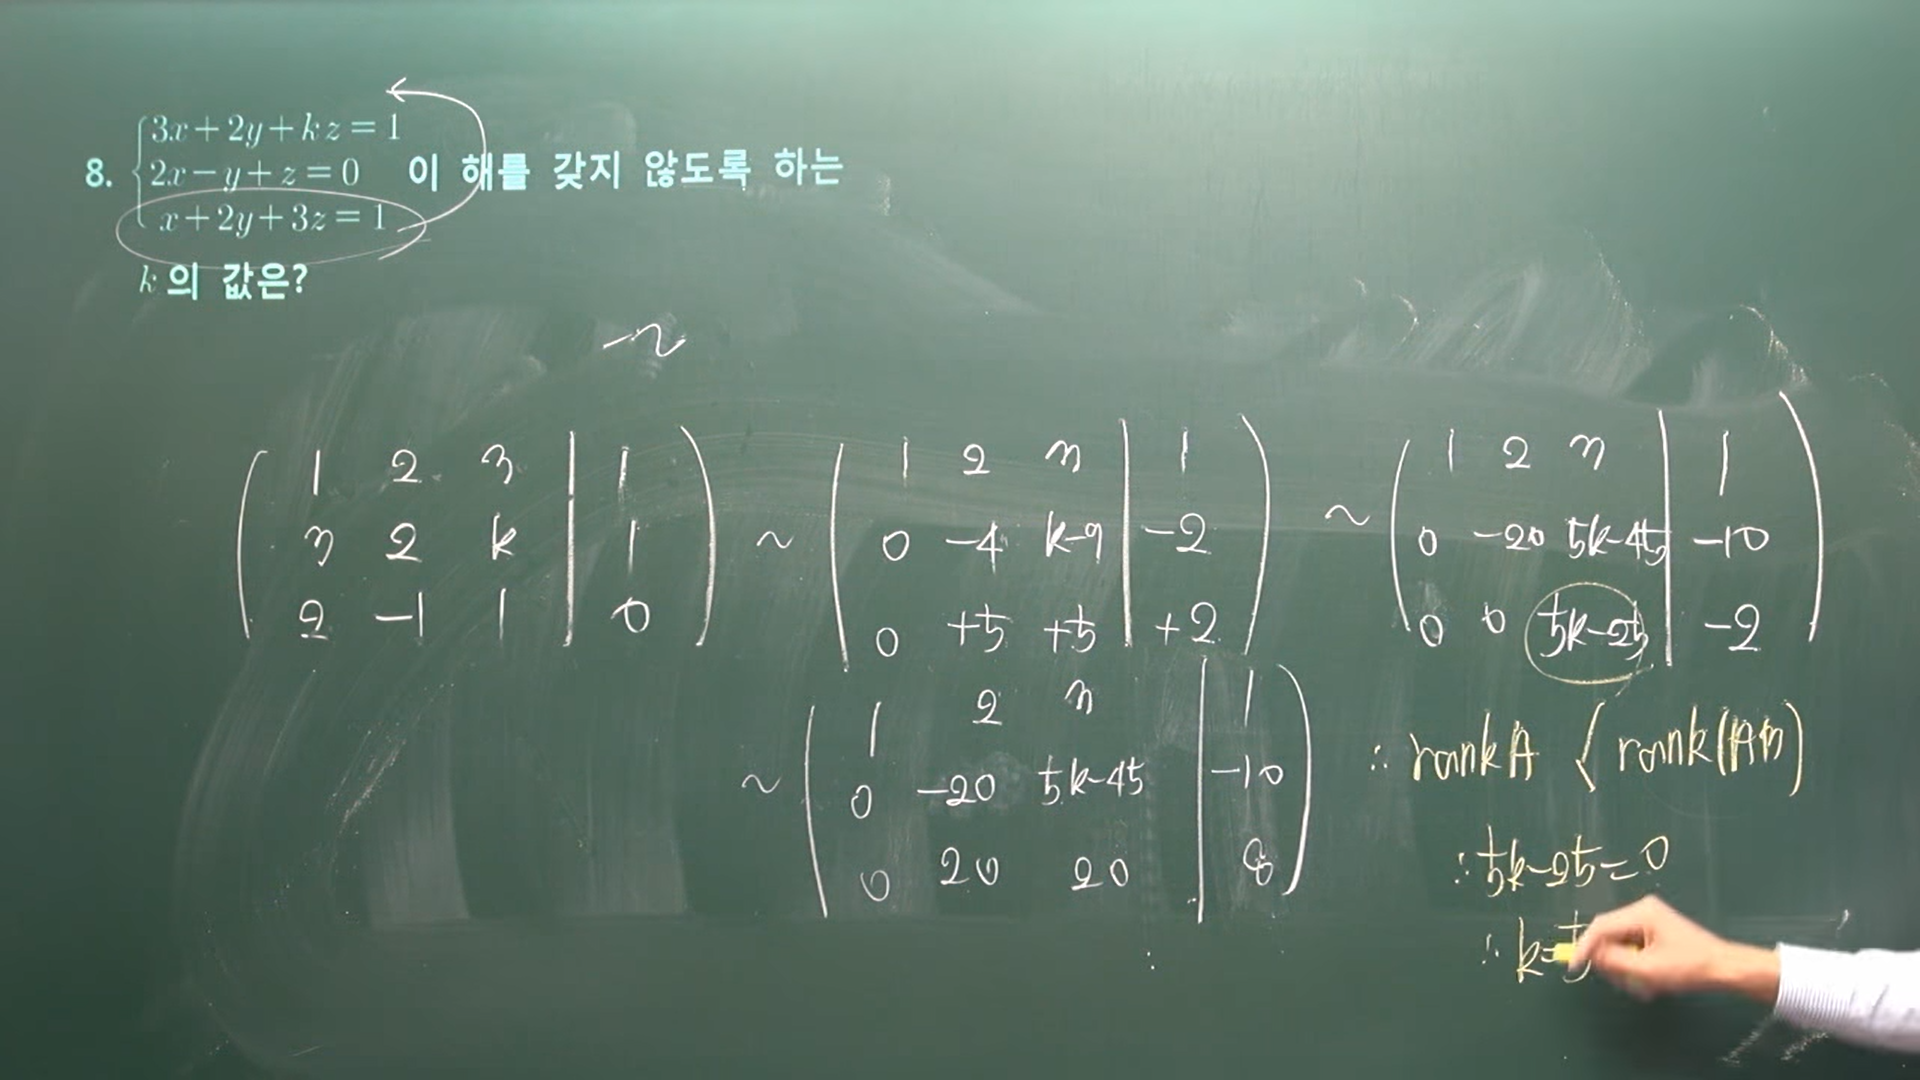 8. 3x+2y+kz=1
2x-y+z=0 이 해를 갖지 않도록 하는
x+2y+3z=1
k의 값은?
~
1 2 3 | 1
3 2 k | 1
2 -1 1 | 0
~
1 2 3 | 1
0 -4 k-9 | -2
0 +5 +5 | +2
~
1 2 3 | 1
0 -20 5k-45 | -10
0 0 5k-25 | -2
~
1 2 3 | 1
0 -20 5k-45 | -10
0 20 20 | 8
∴ rankA < rank(A|b)
∴ 5k-25=0
∴ k=5